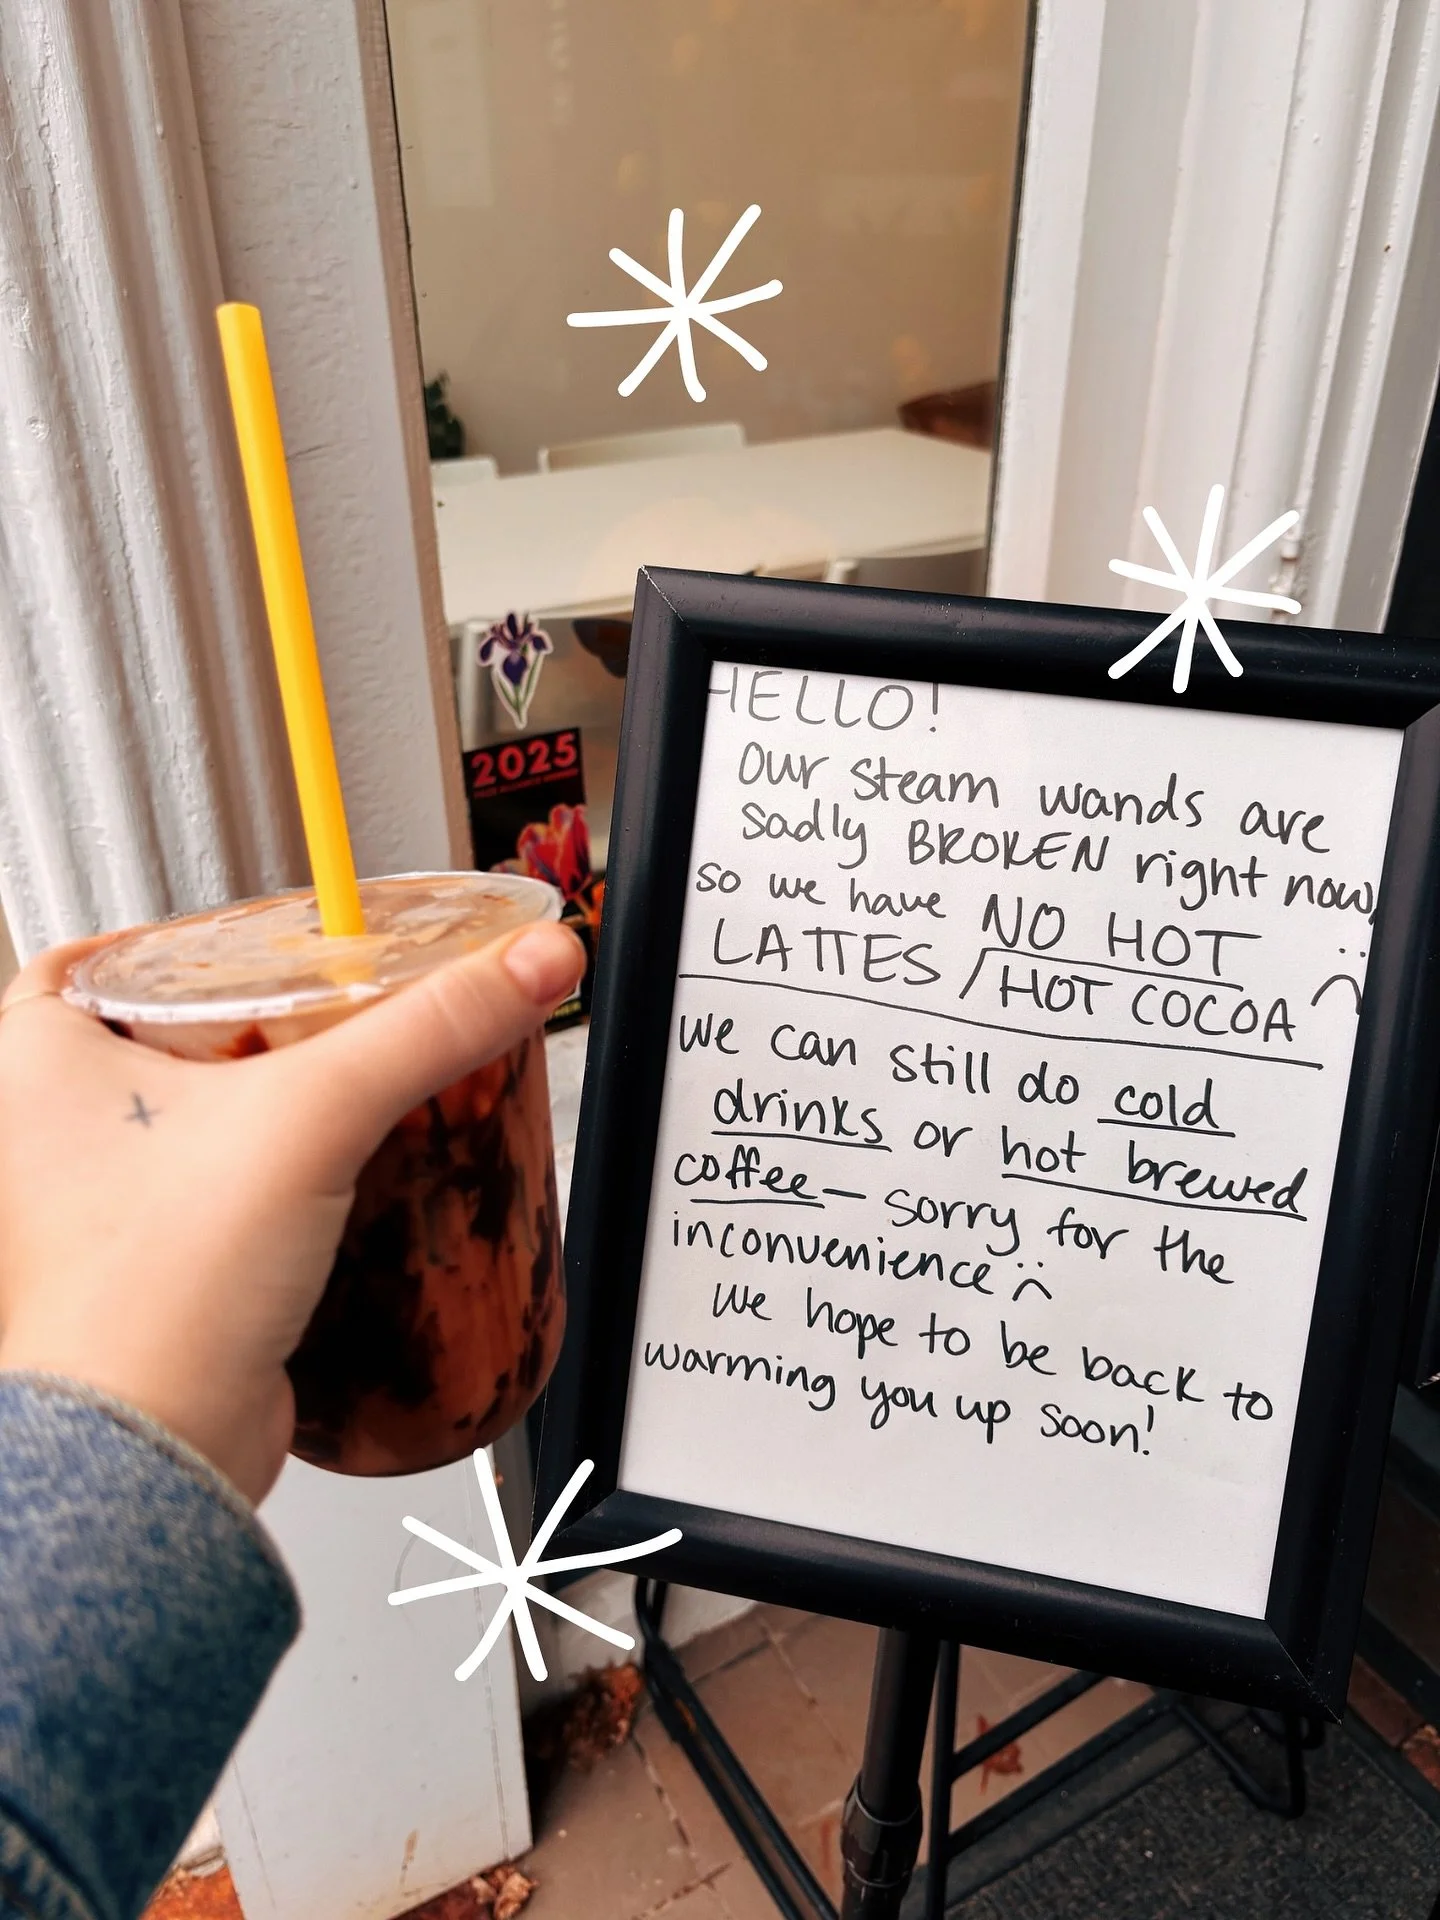 HELLO!
Our steam wands are
sadly BROKEN right now,
so we have NO HOT
LATTES / HOT COCOA
we can still do cold
drinks or hot brewed
coffee — sorry for the
inconvenience
We hope to be back to
warming you up soon!
2025